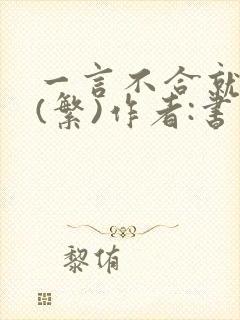 一言不合就
(繁)作者:書
黎侑